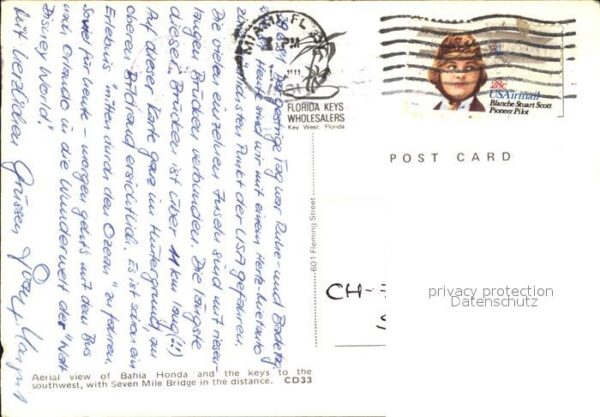 MIAMI, FL
PM
28c
USAirmail
Blanche Stuart Scott
Pioneer Pilot
FLORIDA KEYS
WHOLESALERS
Key West, Florida
POST CARD
601 Fleming Street
CH-
privacy protection
Datenschutz
gestrige Tag war Ruhe- und Badetag.
Heute sind wir mit einem Hertz-Mietauto
Punkt der USA gefahren.
Die vielen einzelnen Inseln sind mit riesen-
langen Brücken verbunden. Die längste
dieser Brücken ist über 11 km lang (!!)
Auf dieser Karte ganz im Hintergrund, am
oberen Bildrand ersichtlich. Es ist schon ein
Erlebnis "mitten durch den Ozean" zu fahren.
Soviel für heute - morgen geht's mit dem Bus
nach Orlando in die Wunderwelt der "Walt
Disney World".
Mit herzlichen Grüssen
Aerial view of Bahia Honda and the keys to the
southwest, with Seven Mile Bridge in the distance. CD33